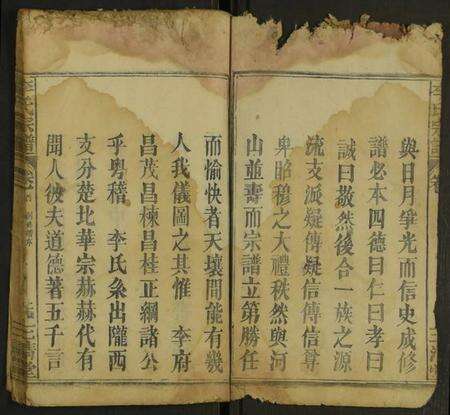 與日月爭光而信史成修
譜必本四德曰仁曰孝曰
誠曰敬然後合一族之源
流支派疑傳疑信傳信尊
卑昭穆之大禮秩然與河
山並壽而宗譜立第勝任
而愉快者天壤間能有幾
人我儀圖之其惟 李府
昌茂昌棟昌桂正綱諸公
乎粵稽 李氏系出隴西
支分楚北華宗赫赫代有
聞人彼夫道德著五千言
李氏宗譜
卷